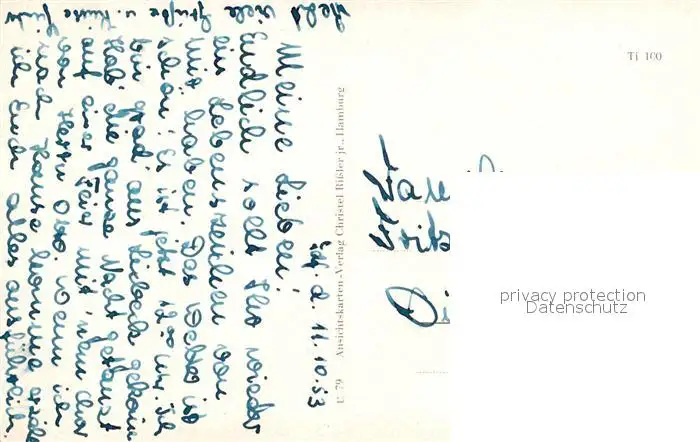 Ldg. d. 11. 10. 53
Meine Lieben!
Endlich sollt Ihr wieder
ein Lebenszeichen von
mir haben. Das Wetter ist
schön! Es ist jetzt 12.00 Uhr. Ich
bin grad aus
Hab die ganze Nacht getanzt
auf einer Feier mit
von Herrn Otto. Wenn ich
nach Hause komme
ich Euch alles ausführlich
Viele Grüße u. Küsse
Ansichtskarten-Verlag Christel Rißler jr., Hamburg
U 79
Ti 100
Fritz
privacy protection
Datenschutz